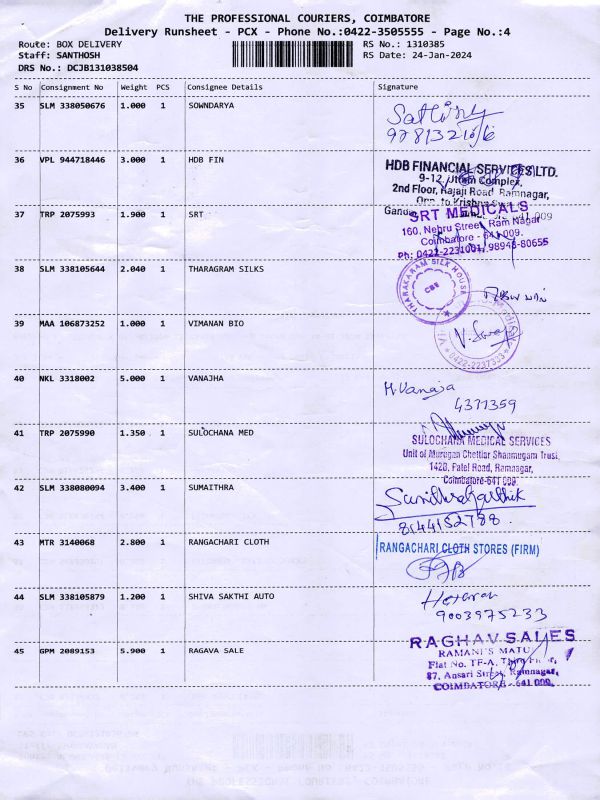 THE PROFESSIONAL COURIERS, COIMBATORE
Delivery Runsheet - PCX - Phone No.:0422-3505555 - Page No.:4
Route: BOX DELIVERY RS No.: 1310385
Staff: SANTHOSH RS Date: 24-Jan-2024
DRS No.: DCJB131038504
S No Consignment No Weight PCS Consignee Details Signature
35 SLM 338050676 1.000 1 SOWNDARYA
36 VPL 944718446 3.000 1 HDB FIN
HDB FINANCIAL SERVICES LTD.
9-12, Uttam Complex,
2nd Floor, Rajaji Road, Ramnagar,
Opp. to Krishna
37 TRP 2075993 1.900 1 SRT
SRT MEDICALS
160, Nehru Street, Ram Nagar
Coimbatore - 641 009.
Ph: 0422-2231001, 98943-80655
38 SLM 338105644 2.040 1 THARAGRAM SILKS
THARAKARAM SILK HOUSE
CBE
39 MAA 106873252 1.000 1 VIMANAN BIO
0422-2237333
40 NKL 3318002 5.000 1 VANAJHA
M. Vanaja
4371359
41 TRP 2075990 1.350 1 SULOCHANA MED
SULOCHANA MEDICAL SERVICES
Unit of Murugan Chettiar Shanmugam Trust
142D, Patel Road, Ramnagar,
Coimbatore-641 009
42 SLM 338080094 3.400 1 SUMAITHRA
8144152788
43 MTR 3140068 2.800 1 RANGACHARI CLOTH
RANGACHARI CLOTH STORES (FIRM)
44 SLM 338105879 1.200 1 SHIVA SAKTHI AUTO
9003975233
45 GPM 2089153 5.900 1 RAGAVA SALE
RAGHAV SALES
RAMANI'S MATU
Flat No. TF-A, Third Floor,
87, Ansari Street, Ramnagar,
COIMBATORE - 641 009.